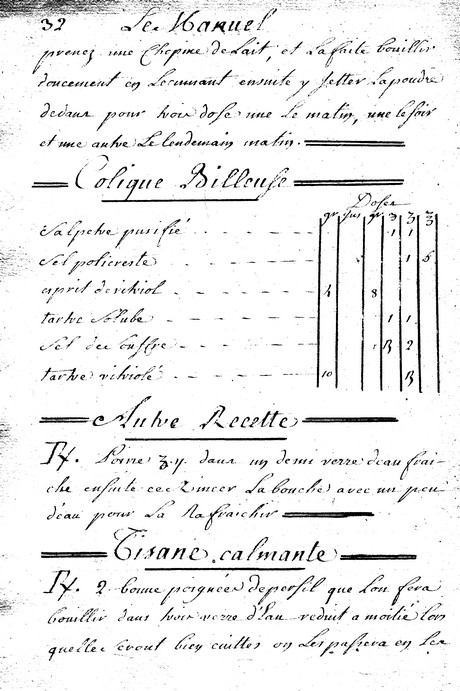 32 Le Manuel
prenez une Chopine de Lait, et La faite bouillir
doucement en Lecumant ensuite y Jetter La poudre
dedans pour trois dose une Le matin, une le soir
et une autre Le lendemain matin.
Colique Billeuse
Doses
gr jus gr ʒ ʒ ℥
Salpetre purifié 1 1
Sel policreste 1 5
esprit de vitriol 4 8
tartre Solube 1 1
Sel de Souffre ß 2
tartre vitriolé 10 ß
Autre Recette
Rx. Poivre ʒ.y. dans un demi verre deau frai-
che ensuite ce Rincer La bouche avec un peu
d'eau pour La Rafraichir
Tisane calmante
Rx. 2 bonne poignée de persil que Lon fera
bouillir dans trois verre d'Eau reduit a moitié Lors
quelle seront bien cuittes on Les passera en Les